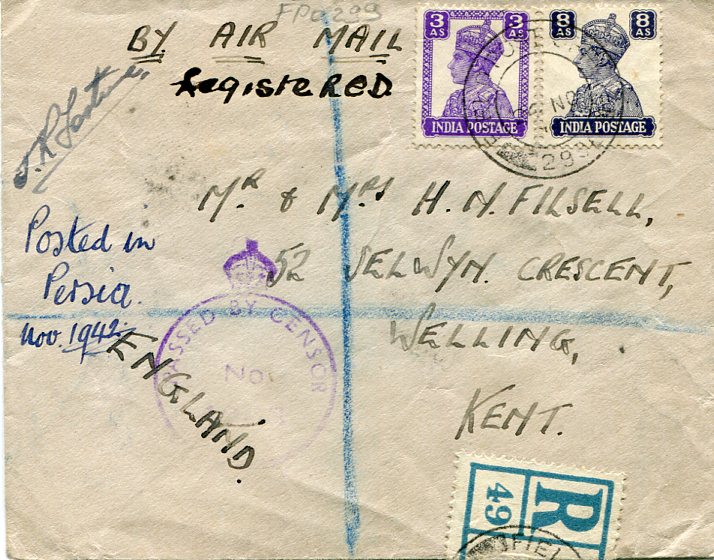 FPO 299
BY AIR MAIL
RegisteReD.
3 AS 3 AS
INDIA POSTAGE
8 AS 8 AS
INDIA POSTAGE
NO
299
Mr & Mrs H. N. FILSELL,
52 SELWYN. CRESCENT,
WELLING,
KENT.
ENGLAND.
Posted in
Persia.
Nov. 1942
PASSED BY CENSOR
No
R
49